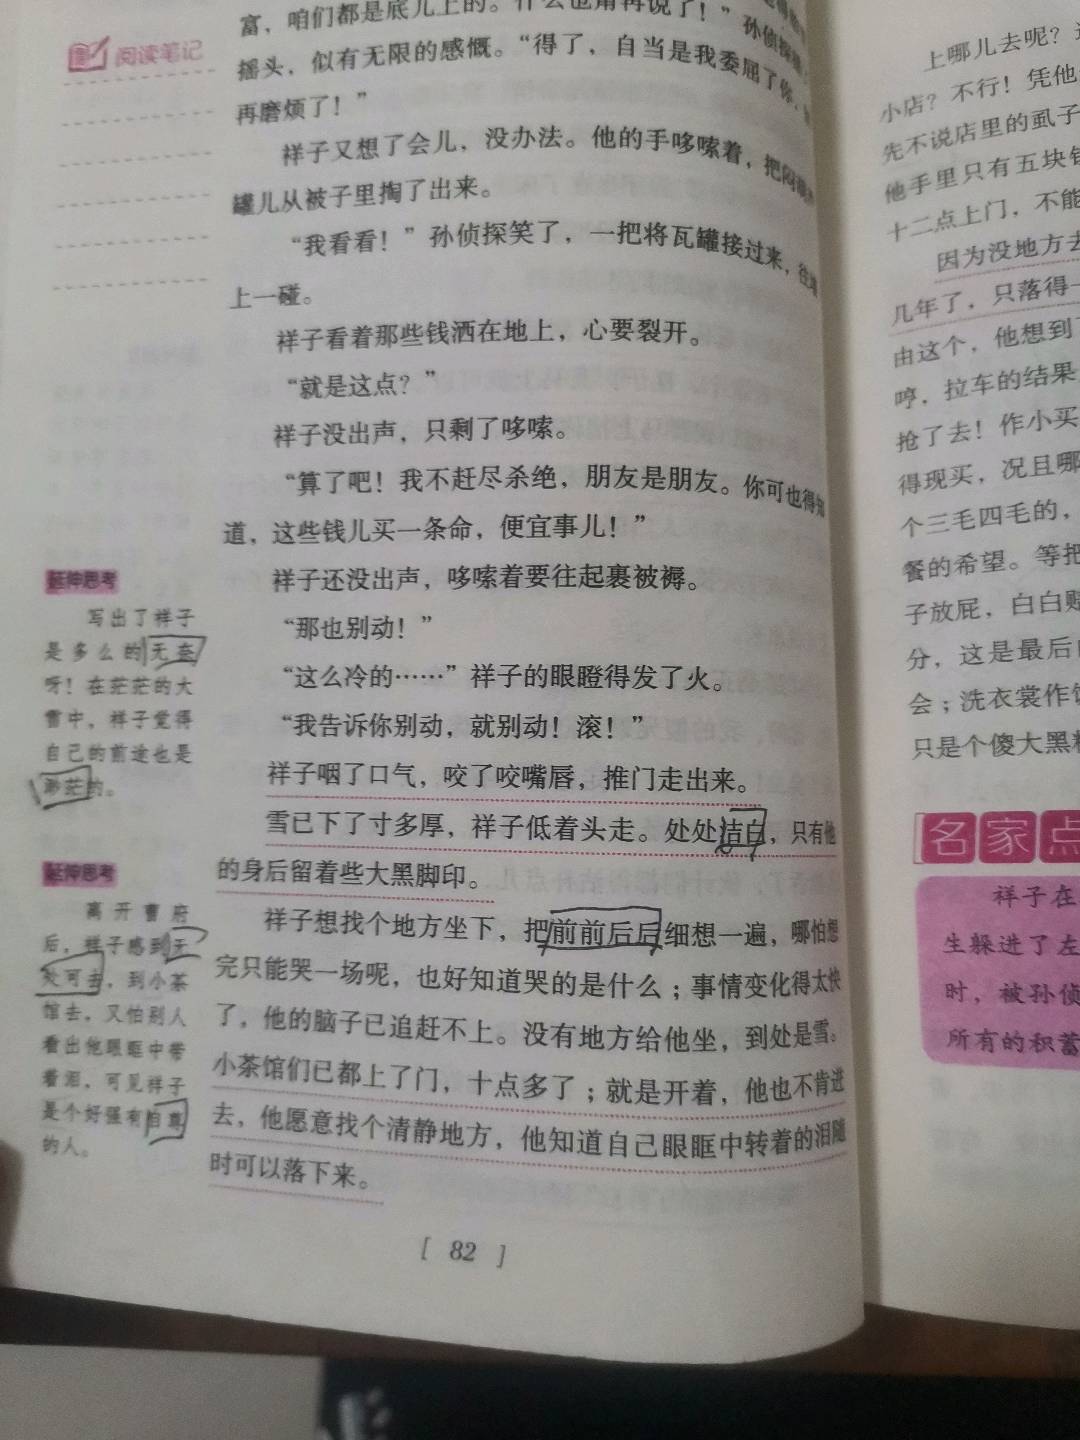 阅读笔记
富，咱们都是底儿上的。什么也甭再说了！”孙侦探
摇头，似有无限的感慨。“得了，自当是我委屈了你，
再磨烦了！”
祥子又想了会儿，没办法。他的手哆嗦着，把闷
罐儿从被子里掏了出来。
“我看看！”孙侦探笑了，一把将瓦罐接过来，往
上一碰。
祥子看着那些钱洒在地上，心要裂开。
“就是这点？”
祥子没出声，只剩了哆嗦。
“算了吧！我不赶尽杀绝，朋友是朋友。你可也得知
道，这些钱儿买一条命，便宜事儿！”
祥子还没出声，哆嗦着要往起裹被褥。
“那也别动！”
“这么冷的……”祥子的眼瞪得发了火。
“我告诉你别动，就别动！滚！”
祥子咽了口气，咬了咬嘴唇，推门走出来。
雪已下了寸多厚，祥子低着头走。处处洁白，只有他
的身后留着些大黑脚印。
祥子想找个地方坐下，把前前后后细想一遍，哪怕想
完只能哭一场呢，也好知道哭的是什么；事情变化得太快
了，他的脑子已追赶不上。没有地方给他坐，到处是雪。
小茶馆们已都上了门，十点多了；就是开着，他也不肯进
去，他愿意找个清静地方，他知道自己眼眶中转着的泪随
时可以落下来。
延伸思考
写出了祥子
是多么的无奈
呀！在茫茫的大
雪中，祥子觉得
自己的前途也是
渺茫的。
延伸思考
离开曹府
后，祥子感到无
处可去，到小茶
馆去，又怕别人
看出他眼眶中带
着泪，可见祥子
是个好强有自尊
的人。
[ 82 ]
上哪儿去呢？
小店？不行！凭他
先不说店里的虱子
他手里只有五块钱
十二点上门，不能
因为没地方去
几年了，只落得一
由这个，他想到了
哼，拉车的结果
抢了去！作小买
得现买，况且哪
个三毛四毛的，
餐的希望。等把
子放屁，白白赔
分，这是最后的
会；洗衣裳作饭
只是个傻大黑粗
名家点
祥子在
生躲进了左
时，被孙侦
所有的积蓄